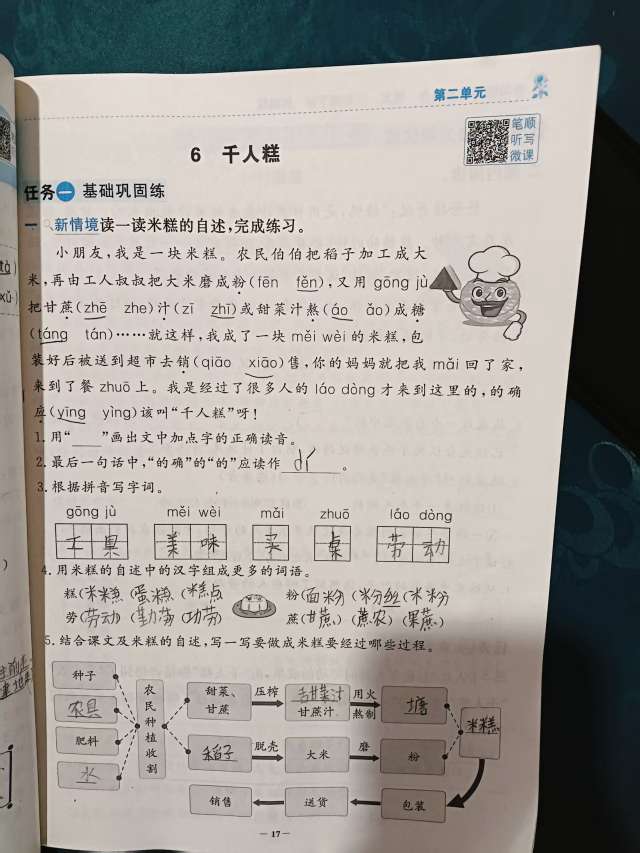 第二单元
6 千人糕
笔顺
听写
微课
任务一 基础巩固练
一、新情境读一读米糕的自述,完成练习。
小朋友,我是一块米糕。农民伯伯把稻子加工成大
米,再由工人叔叔把大米磨成粉(fēn fěn),又用 gōng jù
把甘蔗(zhē zhe)汁(zī zhī)或甜菜汁熬(áo ǎo)成糖
(táng tán)……就这样,我成了一块 měi wèi 的米糕,包
装好后被送到超市去销(qiāo xiāo)售,你的妈妈就把我 mǎi 回了家,
来到了餐 zhuō 上。我是经过了很多人的 láo dòng 才来到这里的,的确
应(yīng yìng)该叫“千人糕”呀!
1. 用“____”画出文中加点字的正确读音。
2. 最后一句话中,“的确”的“的”应读作 dí 。
3. 根据拼音写字词。
gōng jù měi wèi mǎi zhuō láo dòng
工具 美味 买 桌 劳动
4. 用米糕的自述中的汉字组成更多的词语。
糕(米糕 (蛋糕 (糕点 粉(面粉 (粉丝 (米粉
劳(劳动 (勤劳 (功劳) 蔗(甘蔗) (蔗农) (果蔗)
5. 结合课文及米糕的自述,写一写要做成米糕要经过哪些过程。
种子
农具
肥料
水
农民种植收割
甜菜、
甘蔗
压榨
甜菜汁
甘蔗汁
用火
熬制
塘
稻子
脱壳
大米
磨
粉
米糕
销售
送货
包装
— 17 —